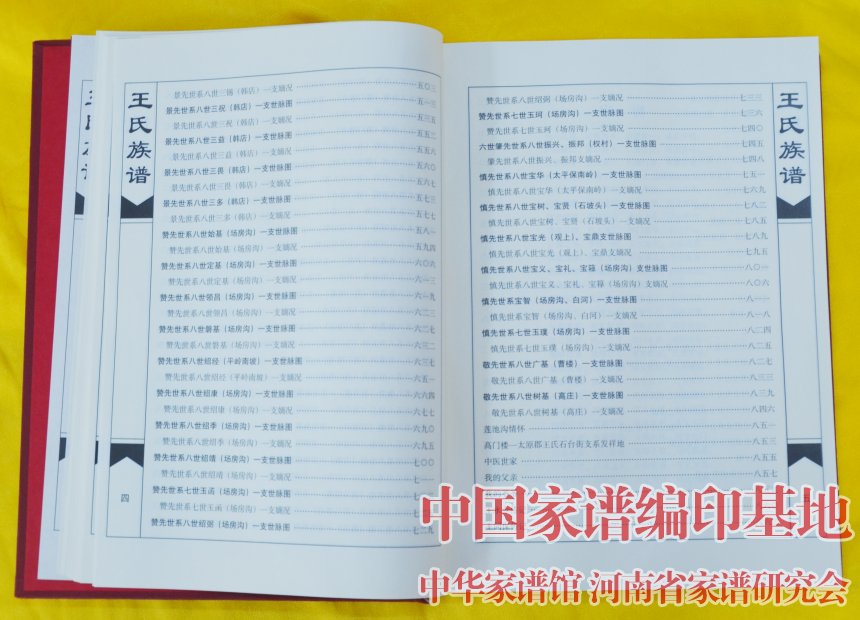 王氏族谱
景先世系八世三锡（韩店）一支嫡况 五〇三
景先世系八世三祝（韩店）一支世脉图 五一三
景先世系八世三祝（韩店）一支嫡况 五二五
景先世系八世三益（韩店）一支世脉图 五五二
景先世系八世三益（韩店）一支嫡况 五五五
景先世系八世三畏（韩店）一支世脉图 五六〇
景先世系八世三畏（韩店）一支嫡况 五六七
景先世系八世三多（韩店）一支世脉图 五七五
景先世系八世三多（韩店）一支嫡况 五七七
赞先世系八世始基（场房沟）一支世脉图 五八一
赞先世系八世始基（场房沟）一支嫡况 五九四
赞先世系八世定基（场房沟）一支世脉图 六〇六
赞先世系八世定基（场房沟）一支嫡况 六一三
赞先世系八世领昌（场房沟）一支世脉图 六一九
赞先世系八世领昌（场房沟）一支嫡况 六二三
赞先世系八世磐基（场房沟）一支世脉图 六二七
赞先世系八世磐基（场房沟）一支嫡况 六三二
赞先世系八世绍经（平岭南坡）一支世脉图 六三七
赞先世系八世绍经（平岭南坡）一支嫡况 六五一
赞先世系八世绍康（场房沟）一支世脉图 六六四
赞先世系八世绍康（场房沟）一支嫡况 六七七
赞先世系八世绍季（场房沟）一支世脉图 六九〇
赞先世系八世绍季（场房沟）一支嫡况 六九五
赞先世系八世绍靖（场房沟）一支世脉图 七〇〇
赞先世系八世绍靖（场房沟）一支嫡况 七一
赞先世系七世玉函（场房沟）一支世脉图 七二
赞先世系七世玉函（场房沟）一支嫡况 七二
赞先世系八世绍弼（场房沟）一支世脉图 七二九
四
王氏族谱
赞先世系八世绍弼（场房沟）一支嫡况 七三三
赞先世系七世玉珂（场房沟）一支世脉图 七三六
赞先世系七世玉珂（场房沟）一支嫡况 七四〇
六世肇先世系八世振兴、振邦（权村）一支世脉图 七四五
肇先世系八世振兴、振邦支嫡况 七四八
慎先世系八世宝华（太平保南岭）一支世脉图 七五一
慎先世系八世宝华（太平保南岭）一支嫡况 七六九
慎先世系八世宝树、宝贤（石坡头）一支世脉图 七八二
慎先世系八世宝树、宝贤（石坡头）一支嫡况 七八五
慎先世系八世宝光（观上）、宝鼎支世脉图 七八九
慎先世系八世宝光（观上）、宝鼎支嫡况 七九五
慎先世系八世宝义、宝礼、宝箓（场房沟）支世脉图 八〇一
慎先世系八世宝义、宝礼、宝箓（场房沟）支嫡况 八〇六
慎先世系宝智（场房沟、白河）一支世脉图 八一一
慎先世系宝智（场房沟、白河）一支嫡况 八一八
慎先世系七世玉璞（场房沟）一支世脉图 八二四
慎先世系七世玉璞（场房沟）一支嫡况 八二五
敬先世系八世广基（曹楼）一支世脉图 八二七
敬先世系八世广基（曹楼）一支嫡况 八三三
敬先世系八世树基（高庄）一支世脉图 八三九
敬先世系八世树基（高庄）一支嫡况 八四六
莲池沟情怀 八五一
高门楼—太原郡王氏石台街支系发祥地 八五三
中医世家 八五五
我的父亲 八五七
中国家谱编印基地
中华家谱馆 河南省家谱研究会